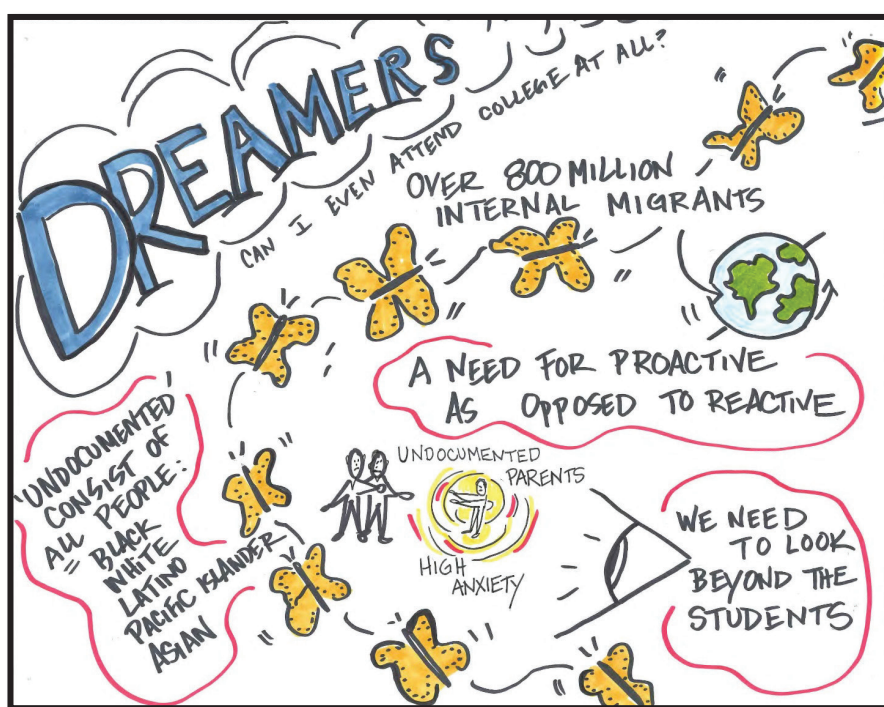 DREAMERS
CAN I EVEN ATTEND COLLEGE AT ALL?
OVER 800 MILLION
INTERNAL MIGRANTS
A NEED FOR PROACTIVE
AS OPPOSED TO REACTIVE
"UNDOCUMENTED
CONSIST OF
ALL PEOPLE:
BLACK
WHITE
LATINO
PACIFIC ISLANDER
ASIAN
UNDOCUMENTED
PARENTS
HIGH
ANXIETY
WE NEED
TO LOOK
BEYOND THE
STUDENTS